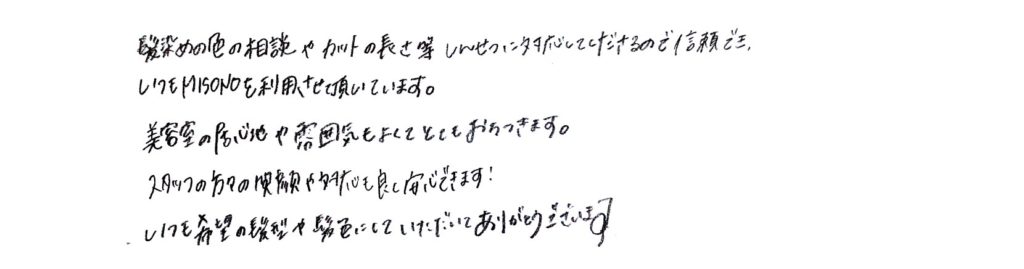 髪染めの色の相談やカットの長さ等しんせつに対応してくださるので信頼でき、
いつもMISONOを利用させて頂いています。
美容室の居心地や雰囲気もよくてとてもおちつきます。
スタッフの方々の笑顔や対応も良く安心できます!
いつも希望の髪型や髪色にしていただいてありがとうございます